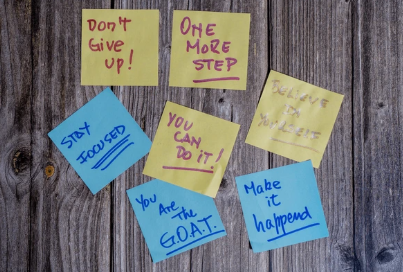 Don't
Give
up!
ONE
MORE
STEP
BELIEVE
IN
YOURSELF
STAY
FOCUSED
YOU
CAN
DO iT!
You
Are
The
G.O.A.T.
Make
it
happend